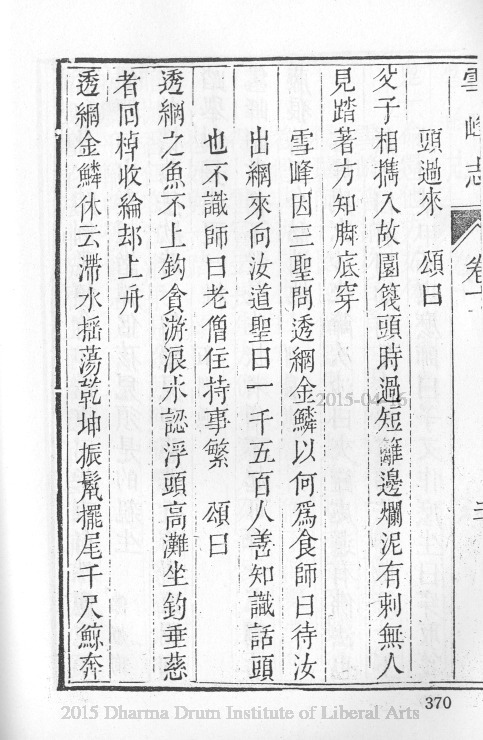 雪峰志 卷十
頭過來 頌曰
父子相攜入故園筏頭時過短籬邊爛泥有刺無人
見踏著方知脚底穿
雪峰因三聖問透網金鱗以何爲食師曰待汝
出網來向汝道聖曰一千五百人善知識話頭
也不識師曰老僧住持事繁 頌曰
透網之魚不上鈎食游浪水認浮頭高灘坐釣垂慈
者回棹收綸却上舟
透網金鱗休云滯水揺蕩乾坤振鬣擺尾千尺鯨奔
370
2015-04-16
2015 Dharma Drum Institute of Liberal Arts